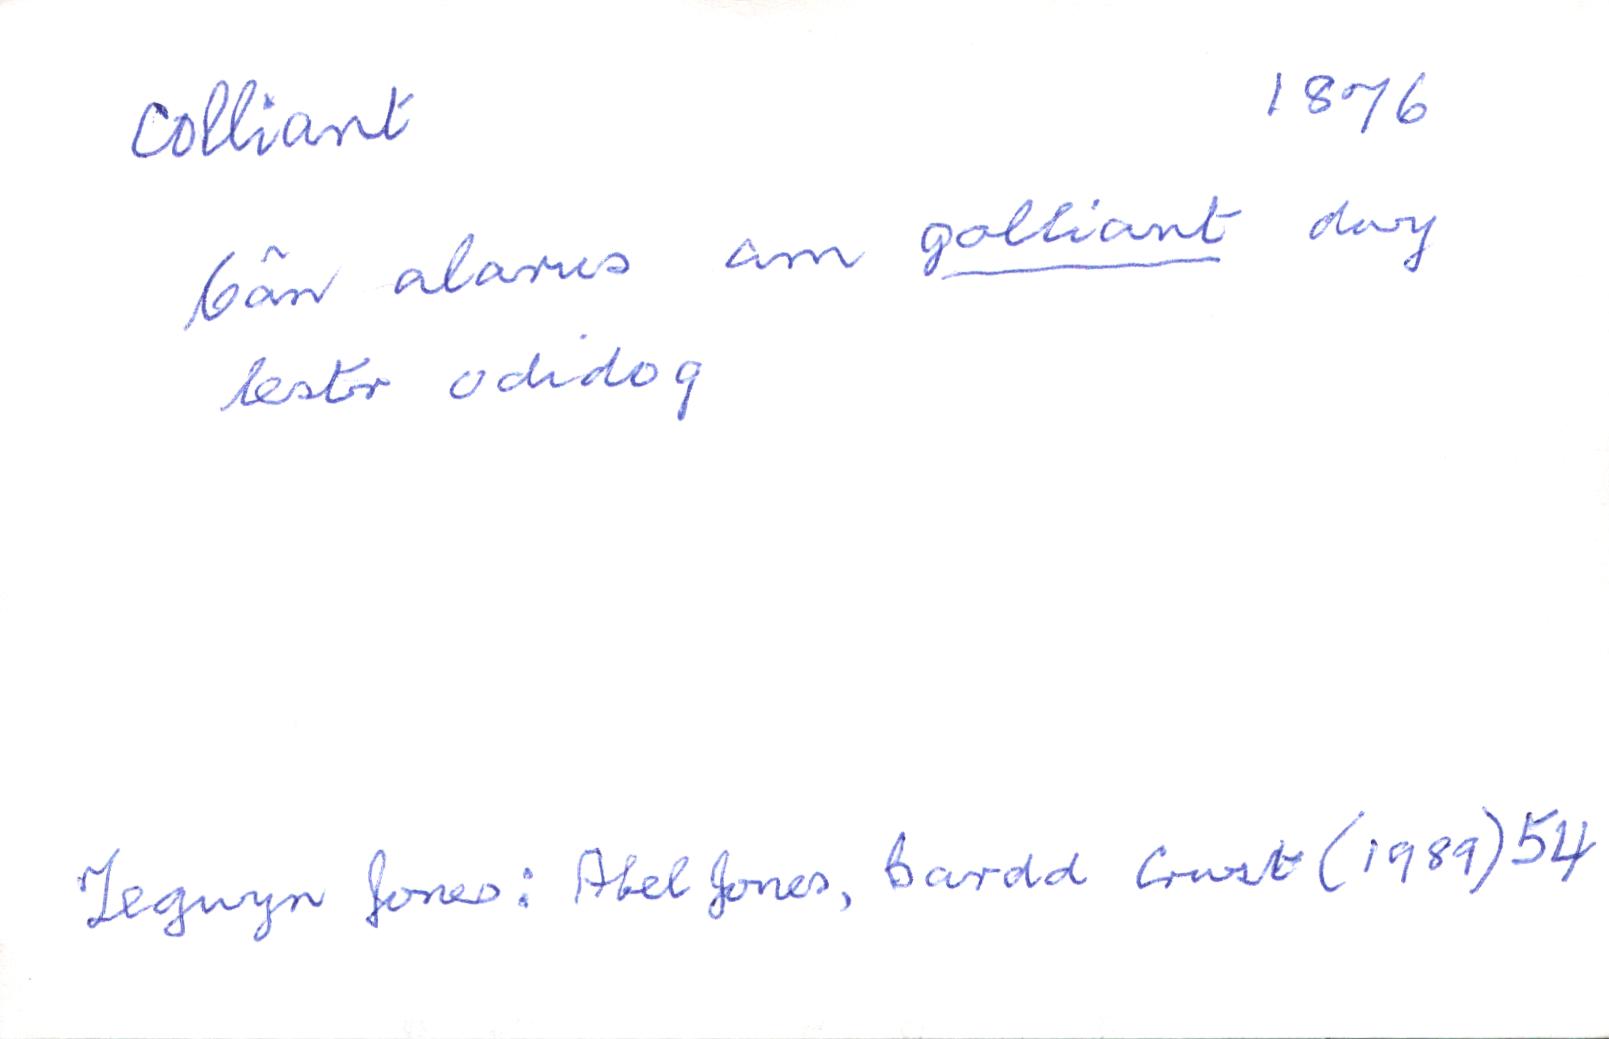 Colliant 1876
Cân alarus am golliant dwy
lestr odidog
Tegwyn Jones: Abel Jones, Bardd Crwst (1989) 54